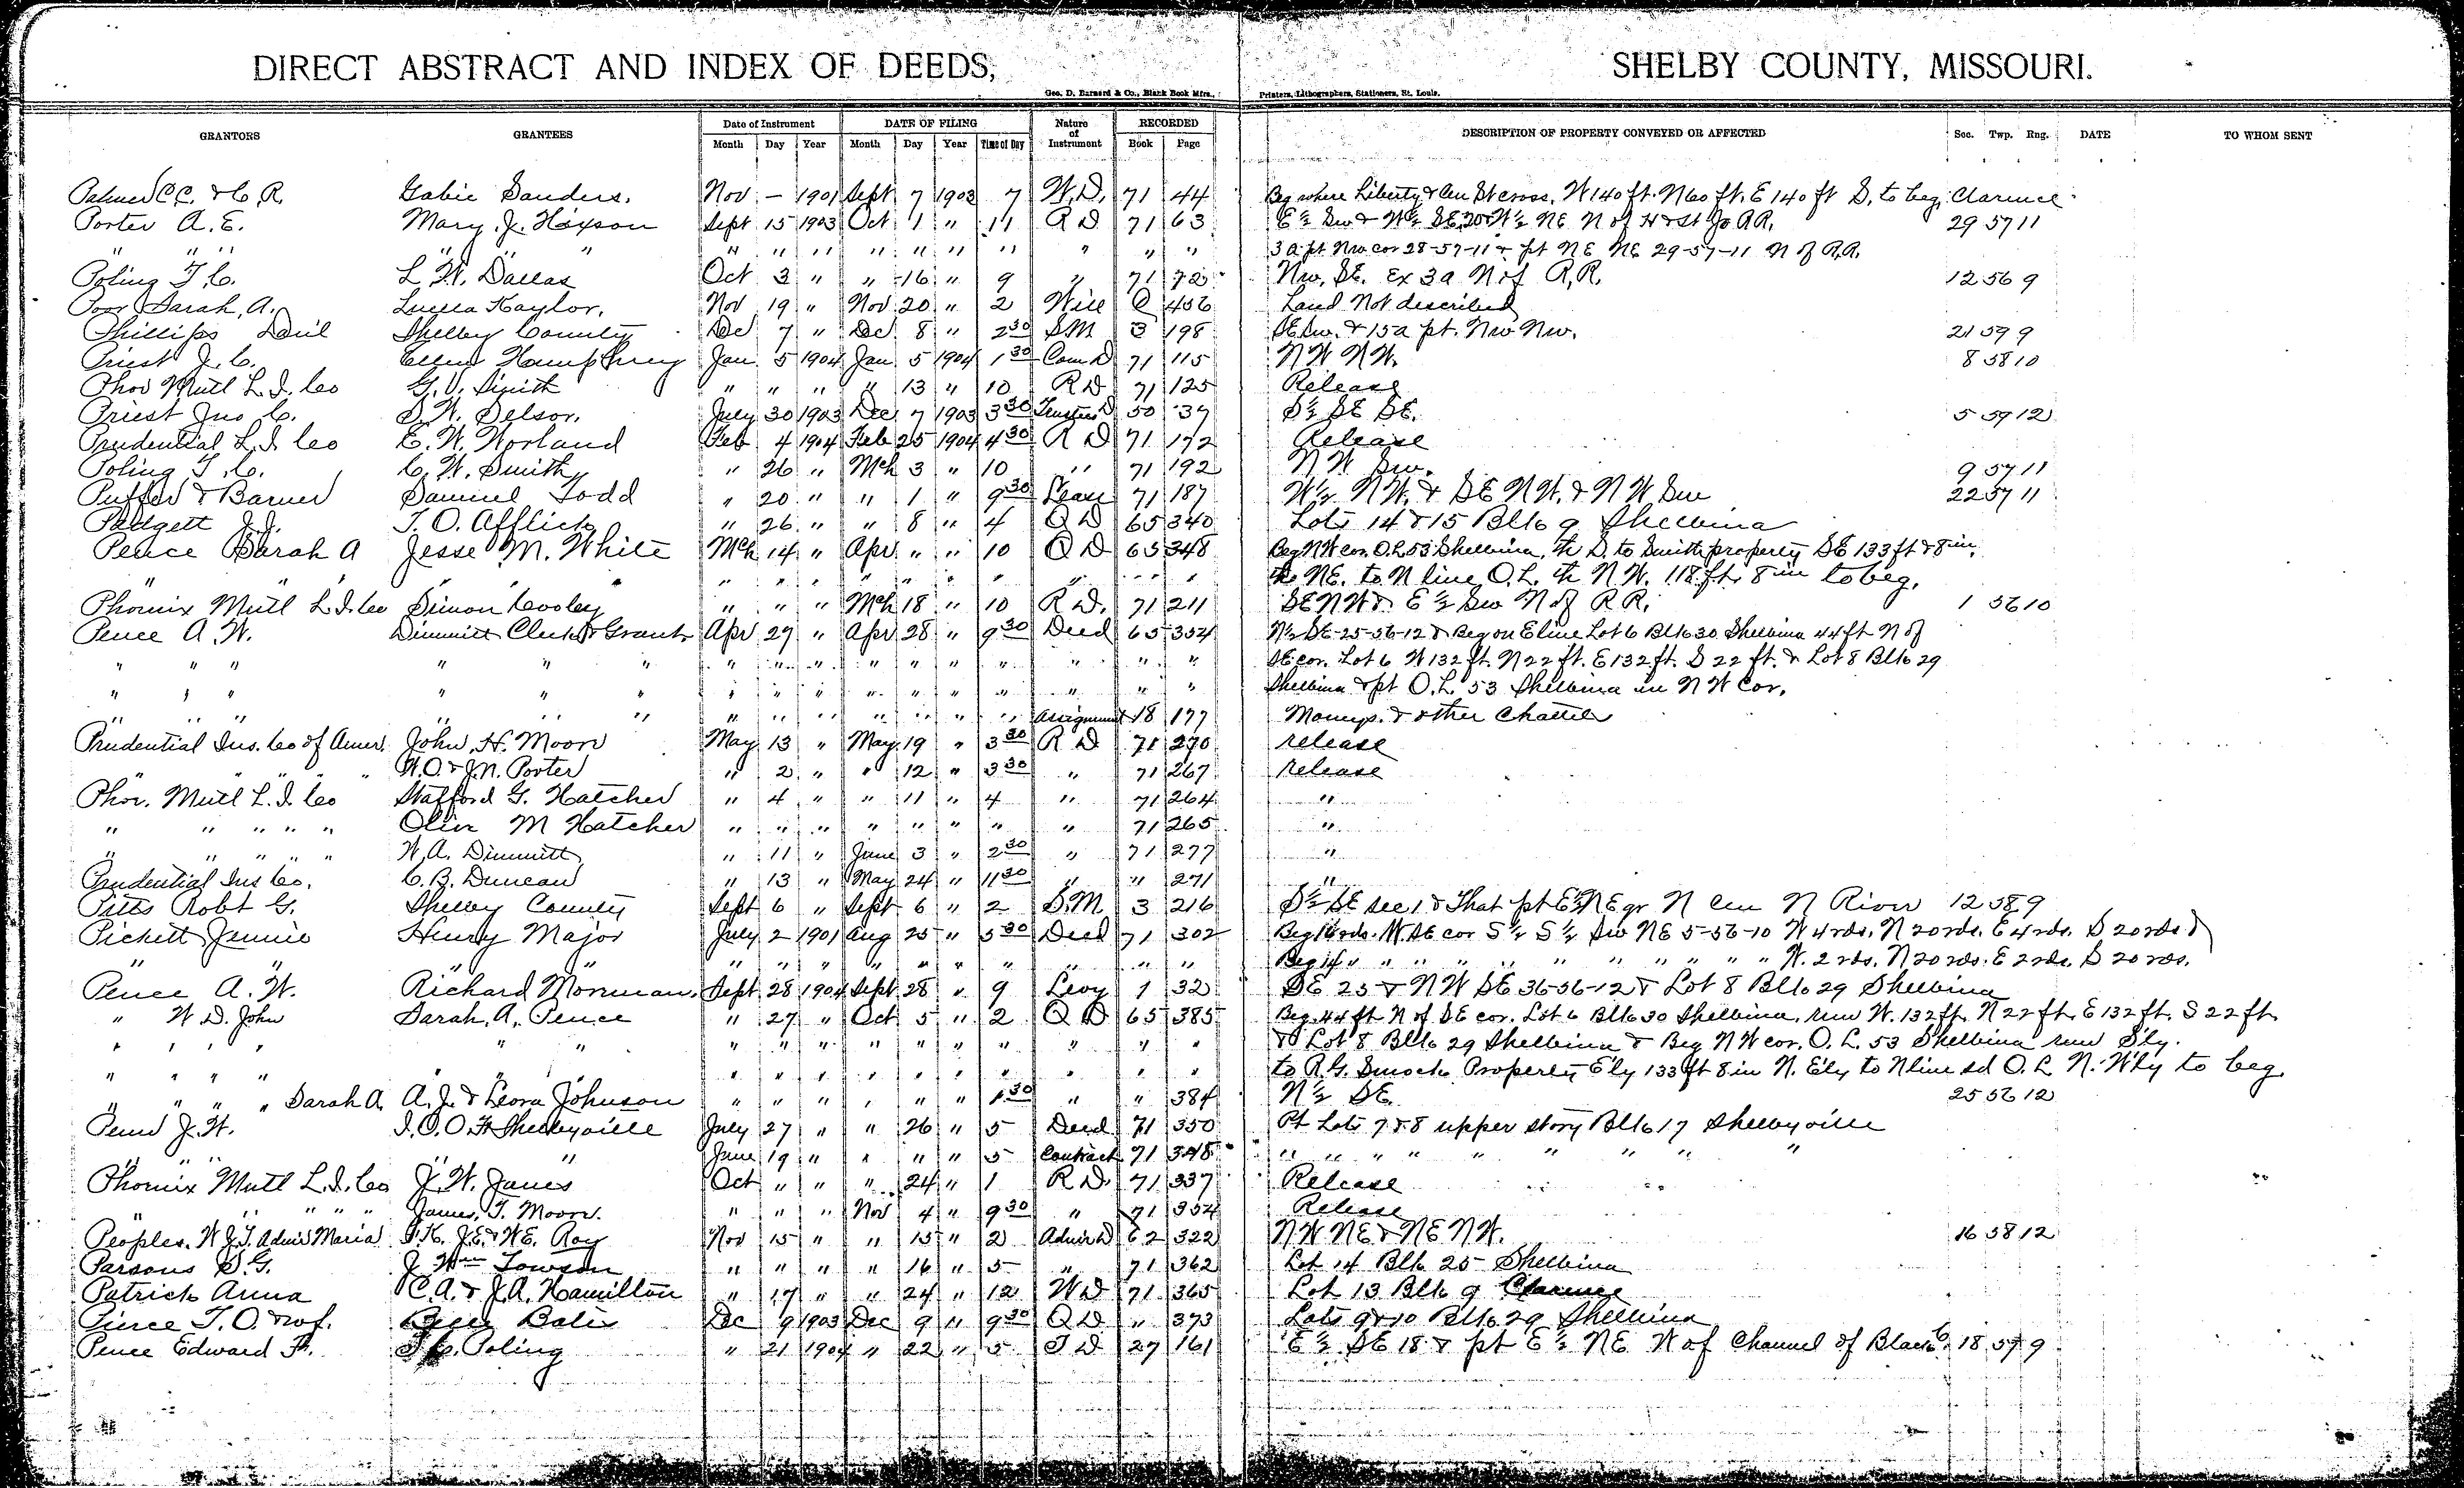 DIRECT ABSTRACT AND INDEX OF DEEDS, SHELBY COUNTY, MISSOURI.
Geo. D. Barnard & Co., Blank Book Mfrs., Printers, Lithographers, Stationers, St. Louis.
GRANTORS GRANTEES Date of Instrument DATE OF FILING Nature of Instrument RECORDED DESCRIPTION OF PROPERTY CONVEYED OR AFFECTED Sec. Twp. Rng. DATE TO WHOM SENT
Month Day Year Month Day Year Time of Day Book Page
Palmer C.C. & C.R. Gabie Sanders. Nov — 1901 Sept 7 1903 7 W.D. 71 44 Beg where Liberty & Cen St cross, W 140 ft. N 60 ft. E 140 ft S. to beg. Clarence
Porter A. E. Mary J. Hixson Sept 15 1903 Oct 1 " 11 R D 71 63 E½ Sw & W½ SE 20 & W½ NE N of H & St Jo R.R. 29 57 11
" " " " " " " " " " " " " " " " 3 a pt Nw cor 28-57-11 & pt NE NE 29-57-11 N of R.R.
Poling T. C. L. W. Dallas Oct 3 " " 16 " 9 " 71 72 Nw, SE. Ex 3a N of R.R. 12 56 9
Poor Sarah, A. Luella Kaylor. Nov 19 " Nov 20 " 2 Will Q 456 Land Not described
Phillips Shelby County Dec 7 " Dec 8 " 2 30 S.M 3 198 SE Sw. & 15a pt. Nw Nw. 21 59 9
Priest J. C. Ellen Humphrey Jan 5 1904 Jan 5 1904 1 30 Com D 71 115 N W N W. 8 58 10
Phoe Mutl L. I. Co G. V. Smith " " " " 13 " 10 R D 71 125 Release
Priest Jno C. S. W. Selsor. July 30 1903 Dec 7 1903 3 30 Trustees D 50 39 S½ SE SE. 5 59 12
Prudential L. I. Co E. W. Worland Feb 4 1904 Feb 25 1904 4 30 R D 71 172 Release
Poling T. C. C. W. Smith " 26 " Mch 3 " 10 " 71 192 N W Sw. 9 57 11
Puffer & Barner Samuel Todd " 20 " " 1 " 9 30 Lease 71 187 W½ N W. & SE N W. & N W Sw 22 57 11
Padgett J. J. T. O. Afflick " 26 " " 8 " 4 Q D 65 340 Lots 14 & 15 Blk 9 Shelbina
Pence Sarah A Jesse M. White Mch 14 " Apr " " 10 Q D 65 348 Beg NW cor. O.L. 53 Shelbina, th S. to Smith property SE 133 ft & 8 in.
" " " " " " " " " " " th NE. to N line O.L. th N.W. 118 ft. 8 in to beg.
Phoenix Mutl L. I. Co Simon Cooley " " " Mch 18 " 10 R D. 71 211 SE N W & E½ Sw N of R R. 1 56 10
Pence A. W. Dimmitt Clerk & Grant Apr 27 " Apr 28 " 9 30 Deed 65 354 N½ SE-25-56-12 & Beg on E line Lot 6 Blk 30 Shelbina 44 ft N of
" " " " " " " " " " " " " " " " SE cor. Lot 6 W 132 ft. N 22 ft. E 132 ft. S 22 ft. & Lot 8 Blk 29
" " " " " " " " " " " " " " " " Shelbina & pt O.L. 53 Shelbina in N W Cor.
" " " " " " " " " " " " " Assignment 18 177 Moneys & other Chattels
Prudential Ins. Co of Amer. John H. Moore May 13 " May 19 " 3 30 R D 71 270 release
" " " W. O. & J. N. Porter " 2 " " 12 " 3 30 " 71 267 release
Phoe. Mutl L. I. Co Stafford G. Hatcher " 4 " " 11 " 4 " 71 264 "
" " " " " Oliver M Hatcher " " " " " " " " 71 265 "
" " " " " W. A. Dimmitt " 11 " June 3 " 2 30 " 71 277 "
Prudential Ins Co. C. B. Duncan " 13 " May 24 " 11 30 " " 271 "
Pitts Robt G. Shelby County Sept 6 " Sept 6 " 2 S.M 3 216 S½ SE sec 1 & That pt E½ NE qr N cen N River 12 58 9
Pickett Jennie Henry Major July 2 1901 Aug 25 " 5 30 Deed 71 302 Beg rds. W. SE cor S½ S½ Sw NE 5-56-10 W 4 rds. N 20 rds. E 4 rds. S 20 rds &
" " " " " " " " " " " " " " Beg 14 " " " " " " " " " " W. 2 rds. N 20 rds. E 2 rds. S 20 rds.
Pence A. W. Richard Morman. Sept 28 1904 Sept 28 " 9 Levy 1 32 SE 25 & N W SE 36-56-12 & Lot 8 Blk 29 Shelbina
" W D. John Sarah, A. Pence " 27 " Oct 5 " 2 Q D 65 385 Beg. 44 ft N of SE cor. Lot 6 Blk 30 Shelbina, run W. 132 ft. N 22 ft. E 132 ft. S 22 ft
" " " " " " " " " " " " " " " " & Lot 8 Blk 29 Shelbina & Beg N W cor. O. L. 53 Shelbina run S'ly.
" " " " " " " " " " " " " " " " to R. G. Smock Property E'ly 133 ft 8 in N. E'ly to N line sd O. L N. W'ly to beg.
" " " " Sarah A. A. J. & Leora Johnson " " " " " " 1 30 " " 384 N½ SE. 25 56 12
J. W. I. O. O. F. Shelbyville July 27 " " 26 " 5 Deed 71 350 Pt Lots 7 & 8 upper story Blk 17 Shelbyville
" " " " June 19 " " " " 5 Contract 71 348 " " " " " " " " "
Phoenix Mutl L. I. Co J. W. Janes Oct " " " 24 " 1 R D. 71 337 Release
" " " " James, T. Moore. " " " Nov 4 " 9 30 " 71 354 Release
Peoples. W J. T. Admr Maria J. E. & W. E. Roy Nov 15 " " 15 " 2 Admr D 62 322 N W NE & NE N W. 16 58 12
Parsons S. G. J Wm Towson " " " " 16 " 5 " 71 362 Lot 14 Blk 25 Shelbina
Patrick Anna C. A. & J. A. Hamilton " 17 " " 24 " 12 W D 71 365 Lot 13 Blk 9 Clarence
Pierce T. O. & wf. Bates Dec 9 1903 Dec 9 " 9 30 Q D " 373 Lots 9 & 10 Blk 29 Shelbina
Pence Edward F. T. C. Poling " 21 1904 " 22 " 5 T D 27 161 E½ SE 18 & pt E½ NE N of Channel of Black C. 18 57 9